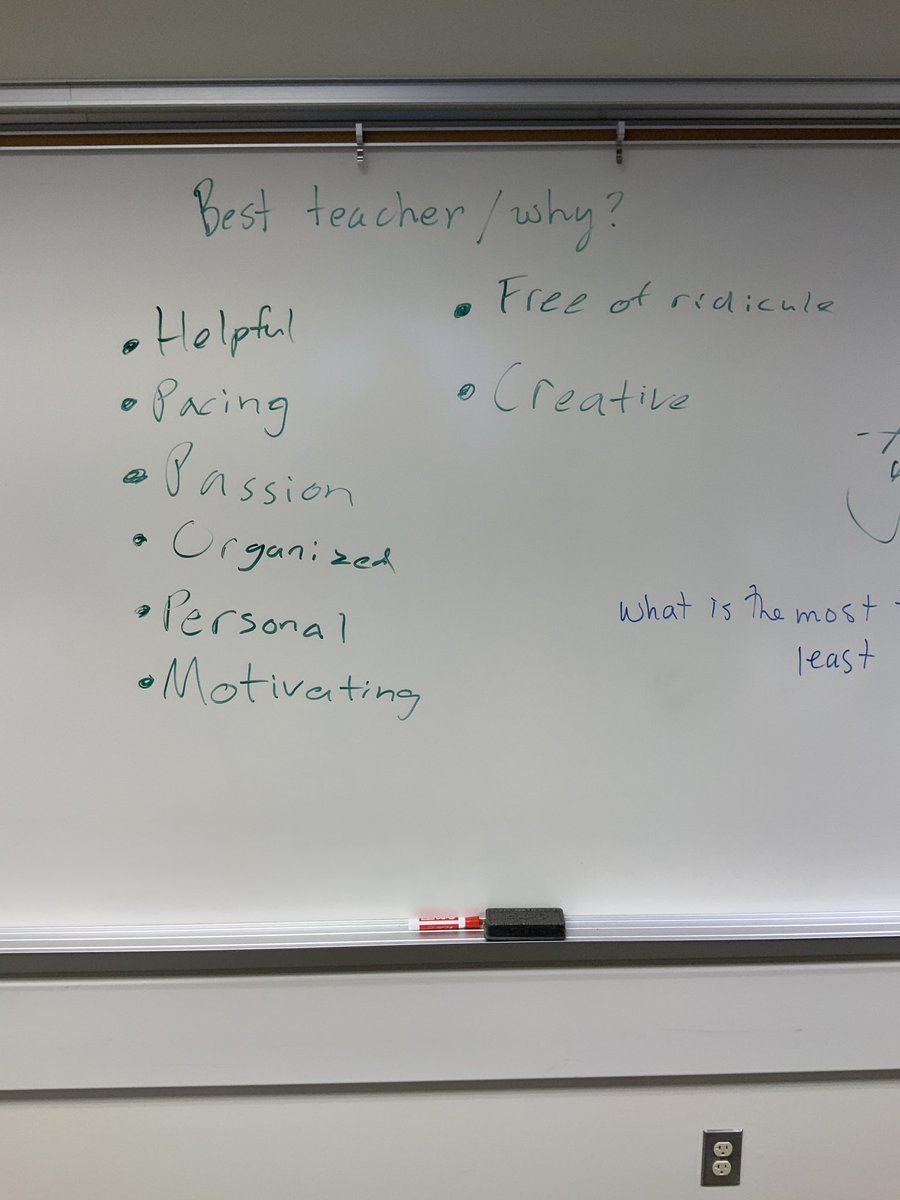 Best teacher / why?
• Helpful
• Pacing
• Passion
• Organized
• Personal
• Motivating
• Free of ridicule
• Creative
what is the most
least